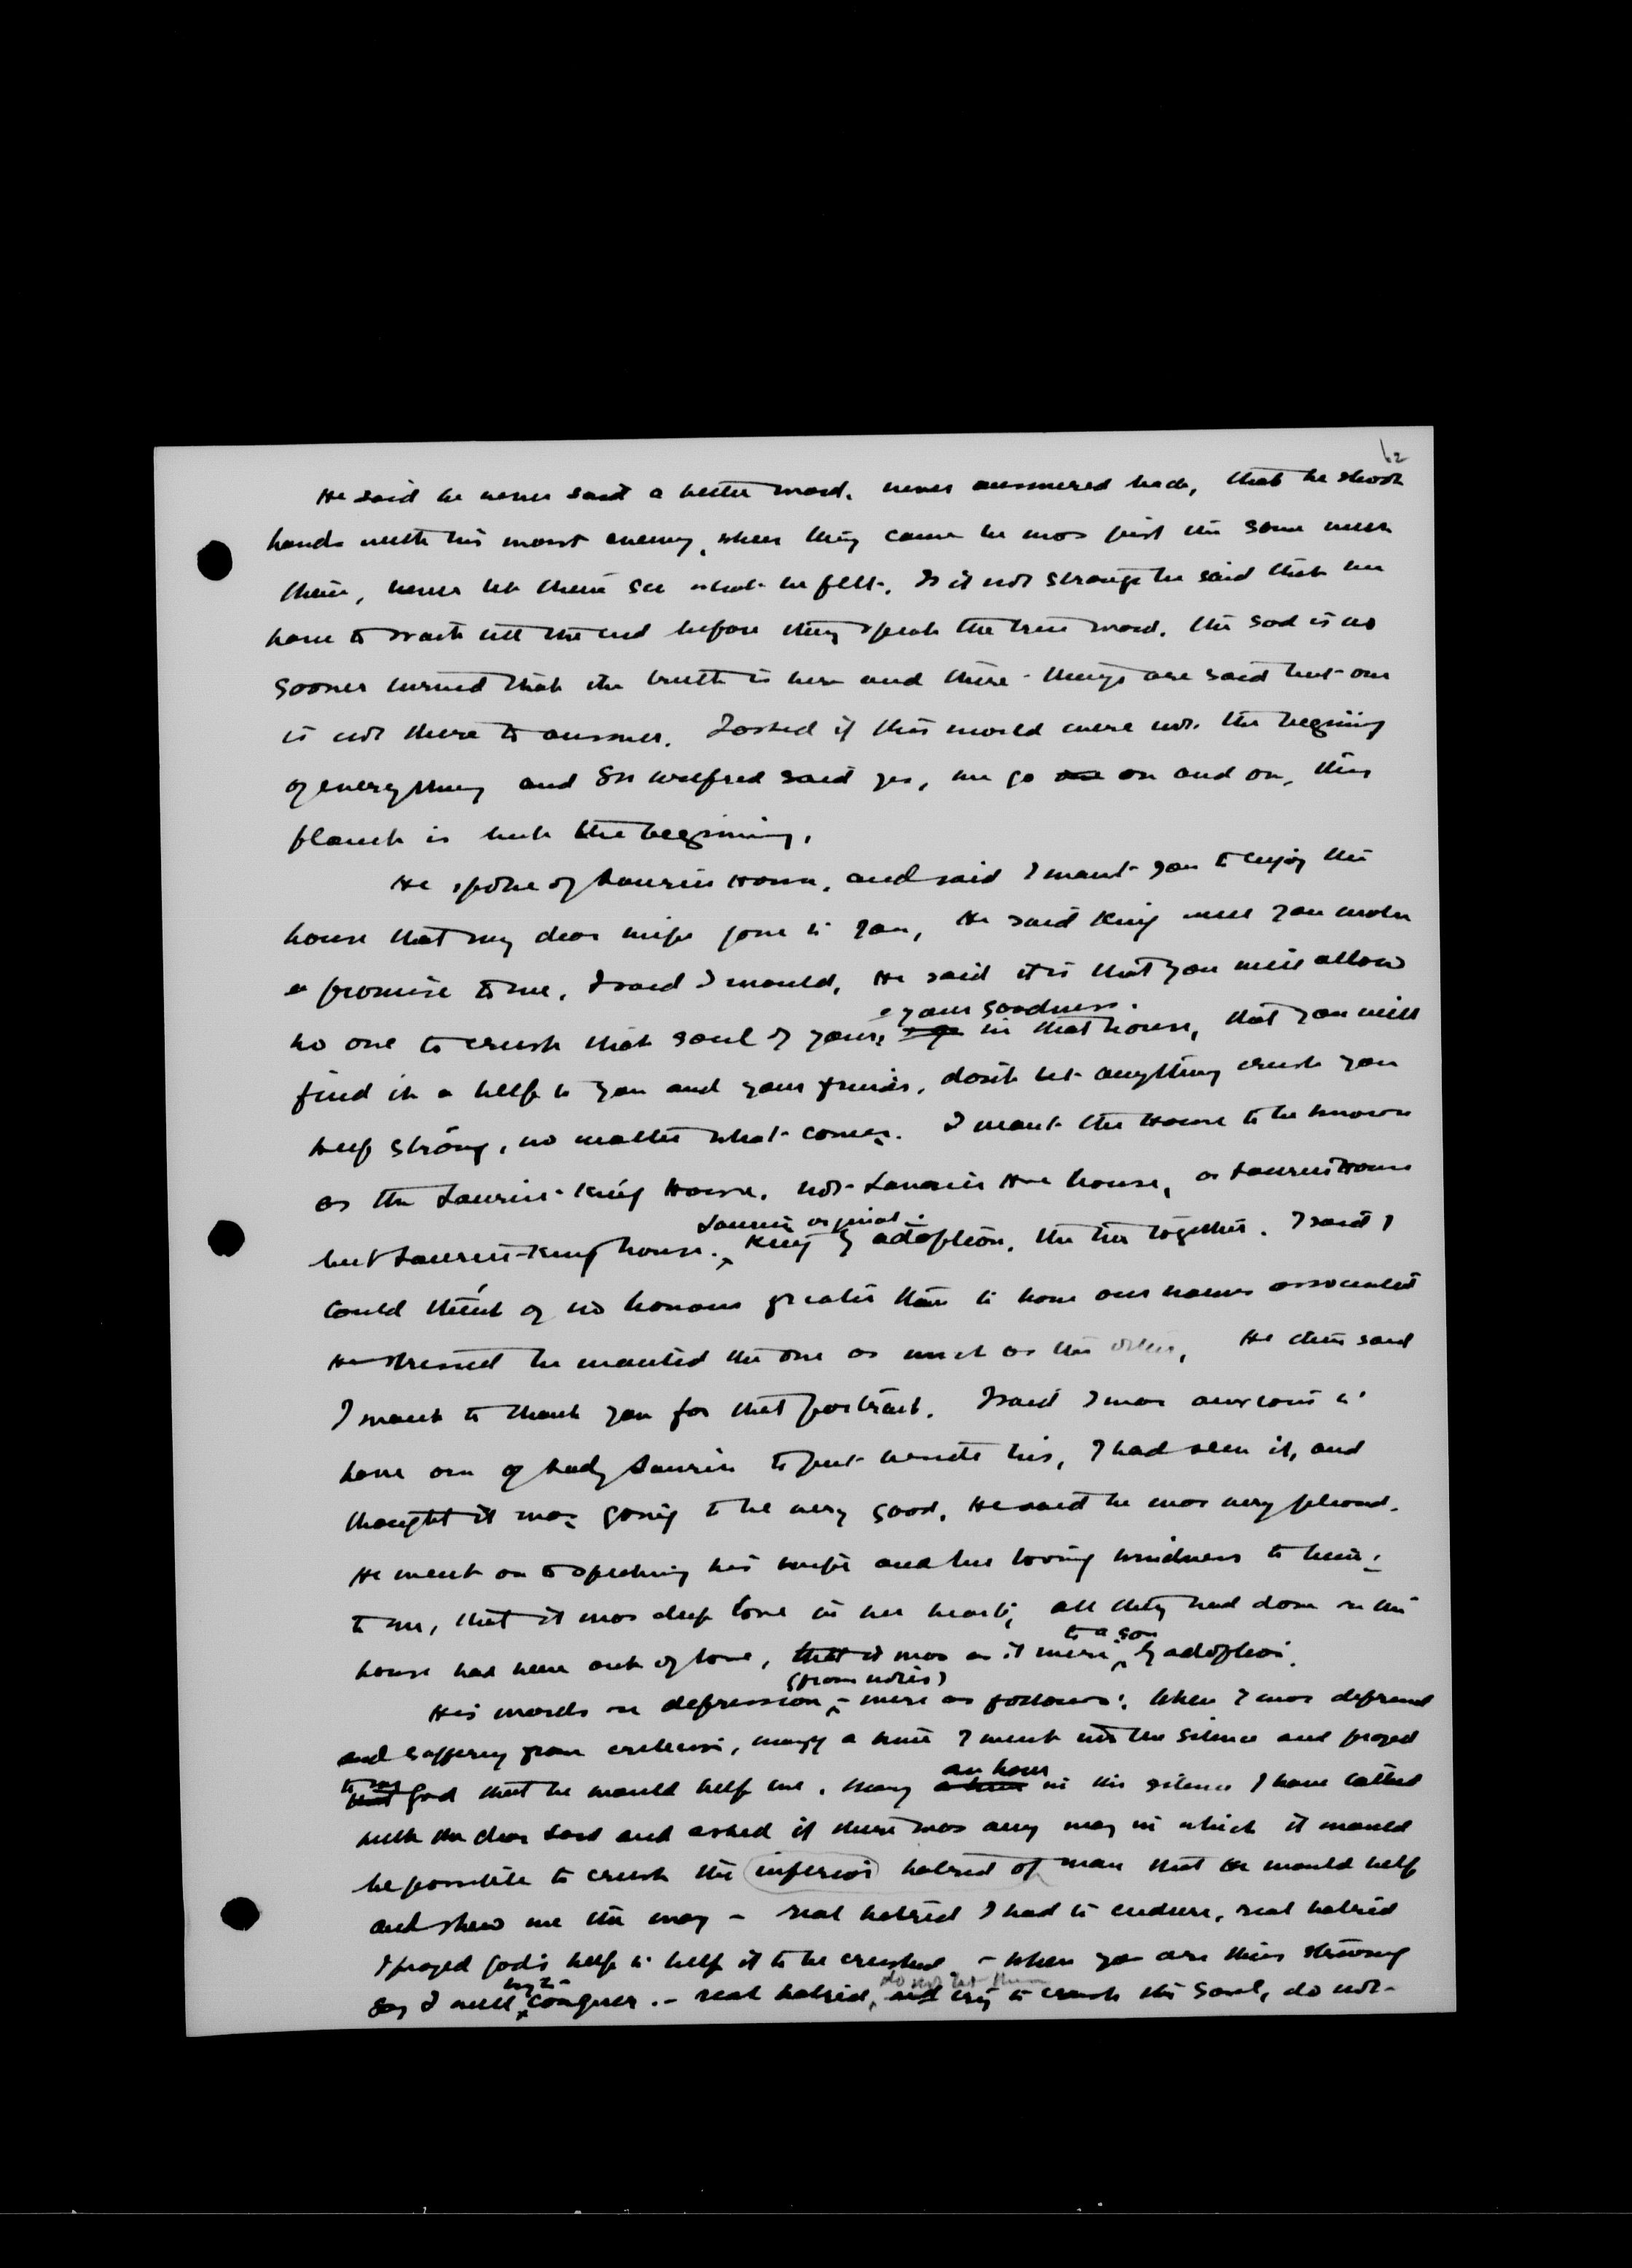 12
He said he never said a bitter word. never answered back, that he shook
hands with his worst enemy, when they came he was just the same with
them, never let them see what he felt. Is it not strange he said that we
have to wait till the end before they speak the true word. the sod is no
sooner turned than the truth is here and there - things are said but one
is not there to answer. I asked if this world were not the begining
of everything and Sir Wilfred said yes, we go on and on, this
planet is but the beginning.
He spoke of Laurier House, and said I want you to enjoy the
house that my dear wife gave to you, He said King will you make
a promise to me, I said I would, He said it is that you will allow
no one to crush that soul of yours, & your goodness. in that house, that you will
find it a help to you and your friends, don't let anything crush you
keep strong, no matter what comes. I want the House to be known
as the Laurier-King House. not Laurier House, or Laurier House
but Laurier-King house. Laurier original. King by adoption, the two together. I said I
could think of no honour greater than to have our names associated
He stressed he wanted the one as much as the other, He then said
I want to thank you for that portrait. I said I was anxious to
have one of Lady Laurier to put beside his, I had seen it, and
thought it was going to be very good, He said he was very pleased.
He went on to speaking his wife and her loving kindness to him,
to me, that it was deep love in her heart, all they had done re the
house had been out of love, that it was as it were to a son by adoption.
His words on depression (from notes) - were as follows: When I was depressed
and suffering from criticism, many a time I went into the silence and prayed
to God that he would help me. Many an hour in the silence I have talked
with the dear Lord and asked if there was any way in which it would
be possible to crush the inferior hatred of man that he would help
and shew me the way - real hatred I had to endure, real hatred
I prayed God's help to help it to be crushed - when you are thus
say I will try to conquer. - real hatred, do not let them try to crush the soul, do not -